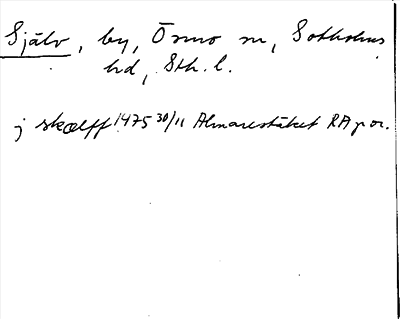 Själv, by, Ösmo sn, Sotholms
hd, Sth. l.
j skælff 1475 30/11 Almarestäket RA p or.